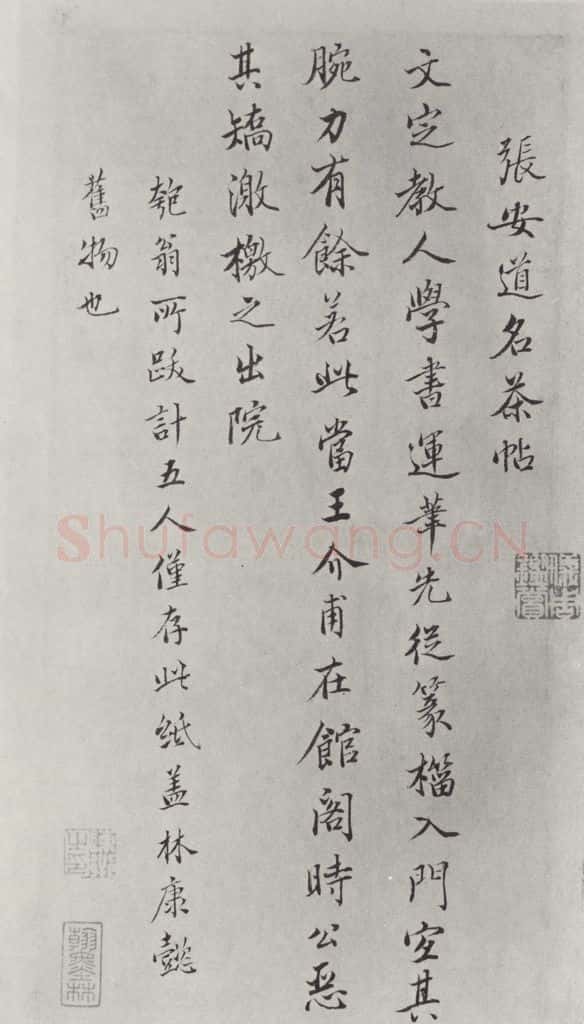 張安道名茶帖
文定教人學書運筆先從篆籀入門宜其
腕力有餘若此當王介甫在館閣時公惡
其矯激檄之出院
匏翁所跋計五人僅存此紙蓋林康懿
舊物也
Shufawang.CN